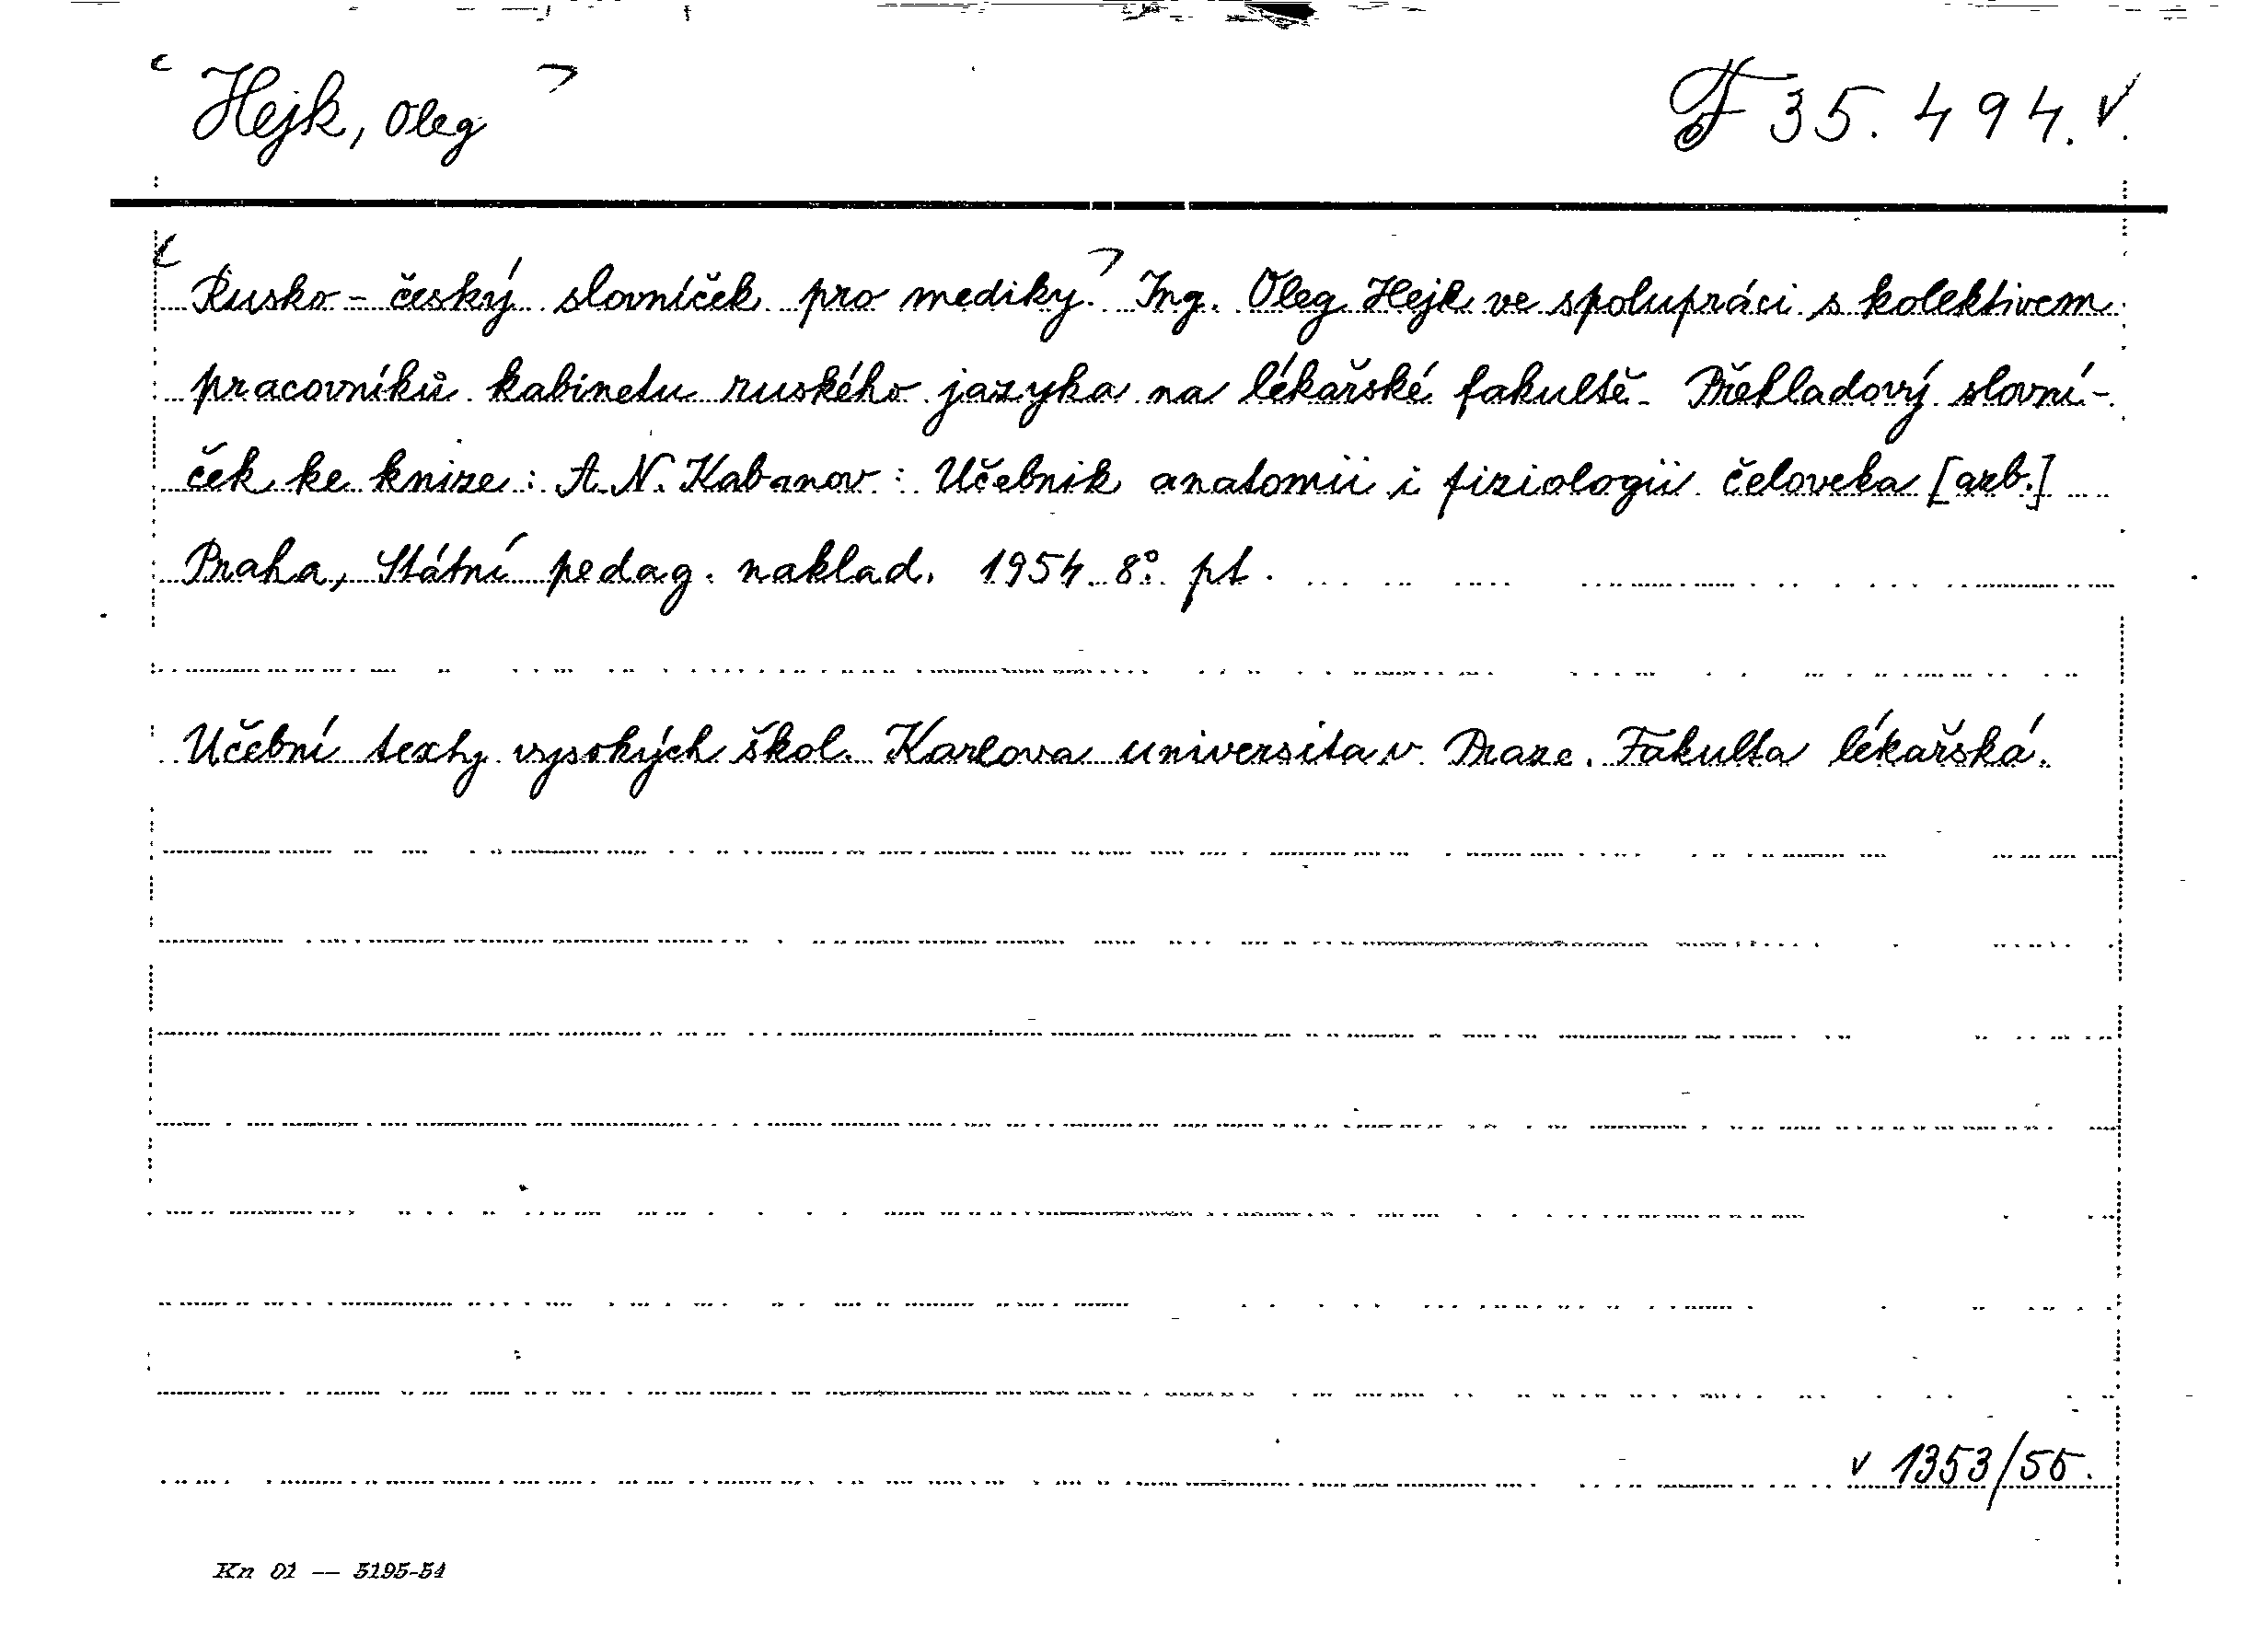 Hejk, Oleg F 35.494.
Rusko-český slovníček pro mediky. Ing. Oleg Hejk ve spolupráci s kolektivem
pracovníků kabinetu ruského jazyka na lékařské fakultě. Překladový slovní-
ček ke knize: A.N. Kabanov: Učebnik anatomii i fiziologii čeloveka [arb.]
Praha, Státní pedag. naklad. 1954. 8° pt.
Učební texty vysokých škol. Karlova universita v Praze. Fakulta lékařská.
v 1353/55.
Kn 01 — 5195-54